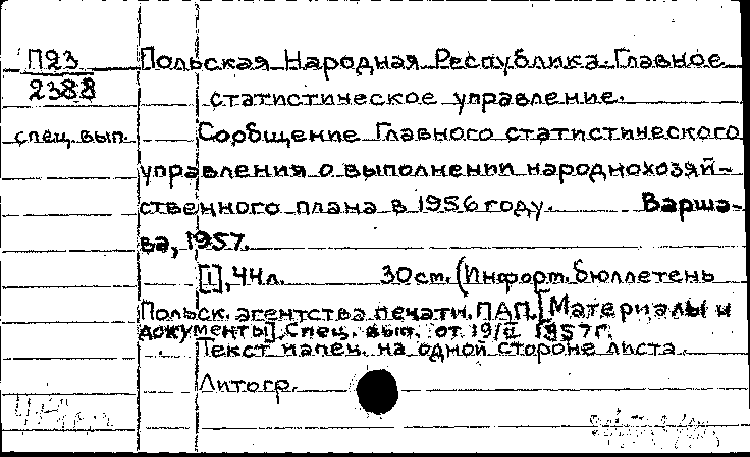 П23 Польская Народная Республика. Главное
2388 статистическое управление.
спец. вып. Сообщение Главного статистического
управления о выполнении народнохозяй-
ственного плана в 1956 году. Варша-
ва, 1957.
[1], 44 л. 30 cm. (Информ. бюллетень
Польск. агентства печати. ПАП. [Материалы и
документы]. Спец. вып. от 19/II 1957 г.
Текст напеч. на одной стороне листа.
Литогр.